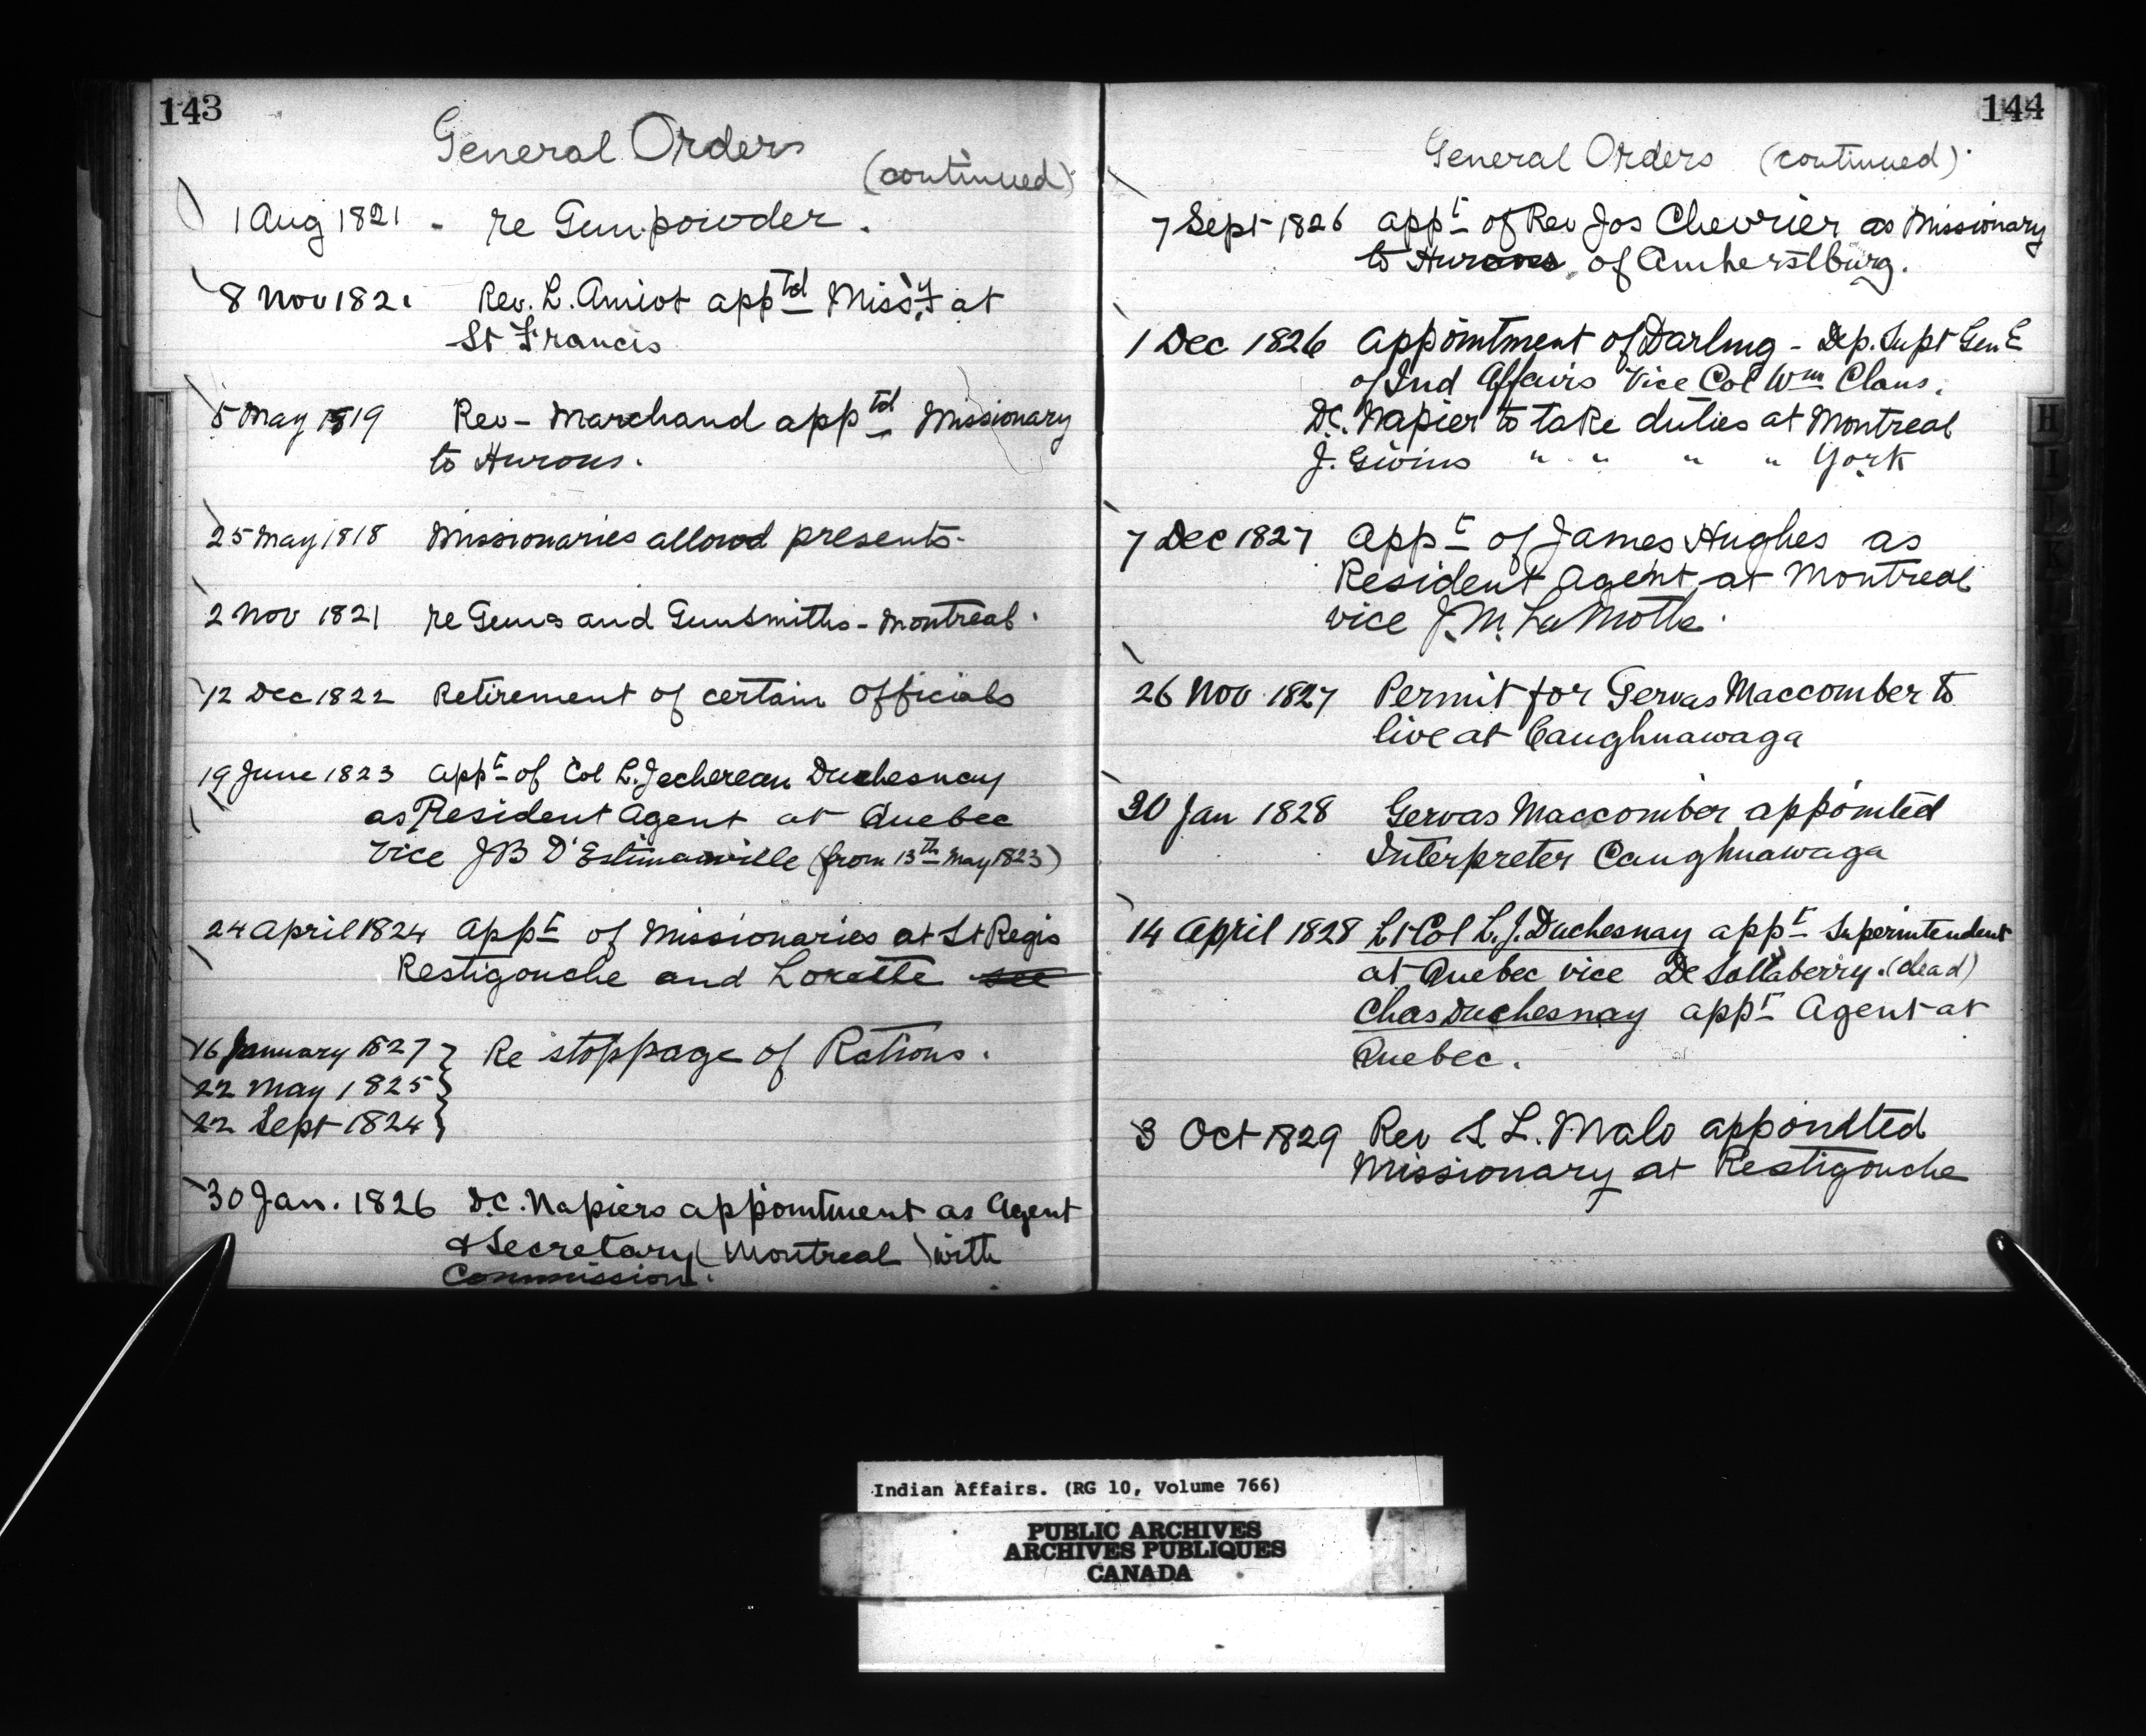 143
General Orders
(continued)
1 Aug 1821 - re Gunpowder.
8 Nov 1821 Rev. L. Amiot apptd Missy at
St Francis
5 May 1819 Rev - Marchand apptd Missionary
to Hurons.
25 May 1818 Missionaries allowd presents-
2 Nov 1821 re Guns and Gunsmiths - Montreal.
12 Dec 1822 Retirement of certain Officials
19 June 1823 appt of Col L. Jechereau Duchesnay
as Resident Agent at Quebec
vice JB D'Estimauville (from 13th May 1823)
24 April 1824 appt of Missionaries at St Regis
Restigouche and Lorette see
16 January 1827 } Re stoppage of Rations.
22 May 1825 }
22 Sept 1824 }
30 Jan. 1826 D.C. Napiers appointment as Agent
& Secretary (Montreal) with
Commission.
144
General Orders (continued)
7 Sept 1826 appt of Rev Jos Chevrier as Missionary
to Hurons of Amherstburg.
1 Dec 1826 Appointment of Darling - Dep. Supt Genl
of Ind Affairs Vice Col Wm Claus.
D.C. Napier to take duties at Montreal
J. Givins " " " " York
7 Dec 1827 Appt of James Hughes as
Resident Agent at Montreal
vice J.M. LaMothe.
26 Nov 1827 Permit for Gervas Maccomber to
live at Caughnawaga
30 Jan 1828 Gervas Maccomber appointed
Interpreter Caughnawaga
14 April 1828 Lt Col L.J. Duchesnay appt Superintendent
at Quebec vice De Sallaberry. (dead)
Chas Duchesnay appt Agent at
Quebec.
3 Oct 1829 Rev S L. Malo appointed
Missionary at Restigouche
H
I
J
K
Indian Affairs. (RG 10, Volume 766)
PUBLIC ARCHIVES
ARCHIVES PUBLIQUES
CANADA